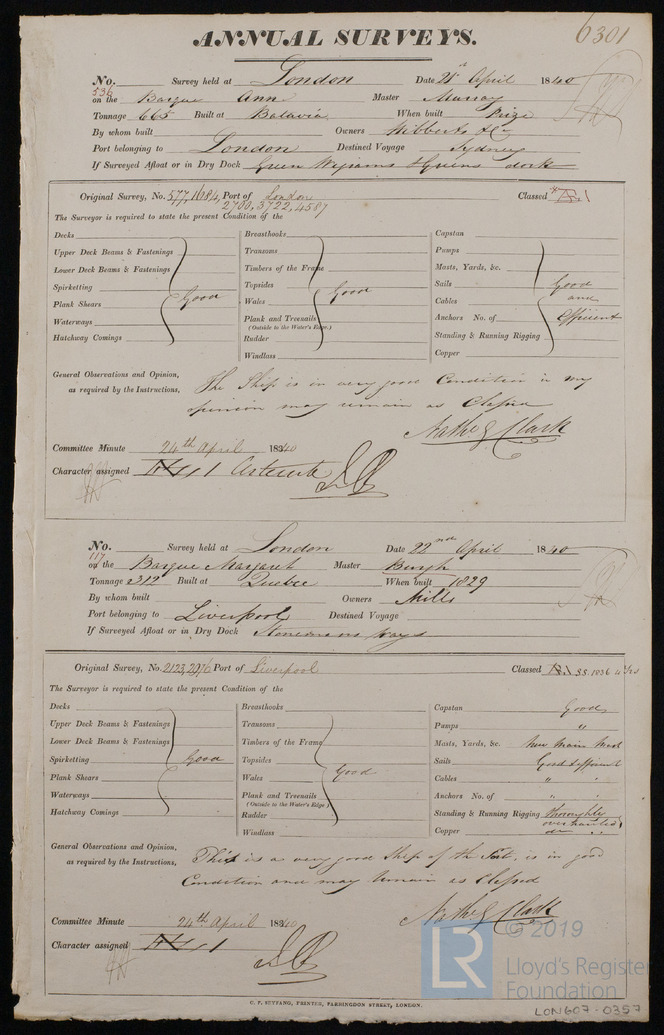 6301
ANNUAL SURVEYS.
No. 536 Survey held at London Date 21st April 1840
on the Barque Ann Master Murray
Tonnage 665 Built at Batavia When built Prize
By whom built Owners Hibberts & Co
Port belonging to London Destined Voyage Sydney
If Surveyed Afloat or in Dry Dock Green Wigrams & Greens dock
Original Survey, No. 577, 1684, Port of London Classed
2700, 3722, 4587
The Surveyor is required to state the present Condition of the
Decks Breasthooks Capstan
Upper Deck Beams & Fastenings Transoms Pumps
Lower Deck Beams & Fastenings Timbers of the Frame Masts, Yards, &c.
Spirketting Good Topsides Good Sails Good
Plank Shears Wales Cables and
Waterways Plank and Treenails Anchors No. of Efficient
(Outside to the Water's Edge.)
Hatchway Comings Rudder Standing & Running Rigging
Windlass Copper
General Observations and Opinion, The Ship is in very good Condition in my
as required by the Instructions, opinion may remain as Classed
Nathl G Clark
Committee Minute 24th April 1840
Character assigned 1 Asterisk
No. 117 Survey held at London Date 22nd April 1840
on the Barque Margaret Master Burgh
Tonnage 312 Built at Quebec When built 1829
By whom built Owners Mills
Port belonging to Liverpool Destined Voyage
If Surveyed Afloat or in Dry Dock Stonemans ways
Original Survey, No. 2123, 2976 Port of Liverpool Classed SS. 1836 4 yrs
The Surveyor is required to state the present Condition of the
Decks Breasthooks Capstan Good
Upper Deck Beams & Fastenings Transoms Pumps "
Lower Deck Beams & Fastenings Timbers of the Frame Masts, Yards, &c. New Main Mast
Spirketting Good Topsides Good Sails Good & efficient
Plank Shears Wales Cables " "
Waterways Plank and Treenails Anchors No. of " "
(Outside to the Water's Edge.)
Hatchway Comings Rudder Standing & Running Rigging thoroughly
overhauled
Windlass Copper do " "
General Observations and Opinion, This is a very good Ship of the Sort, is in good
as required by the Instructions, Condition and may remain as Classed
Nathl G Clark
Committee Minute 24th April 1840
Character assigned 1
C. F. SEYFANG, PRINTER, FARRINGDON STREET, LONDON.
LR © 2019
Lloyd's Register
Foundation
LON607-0357